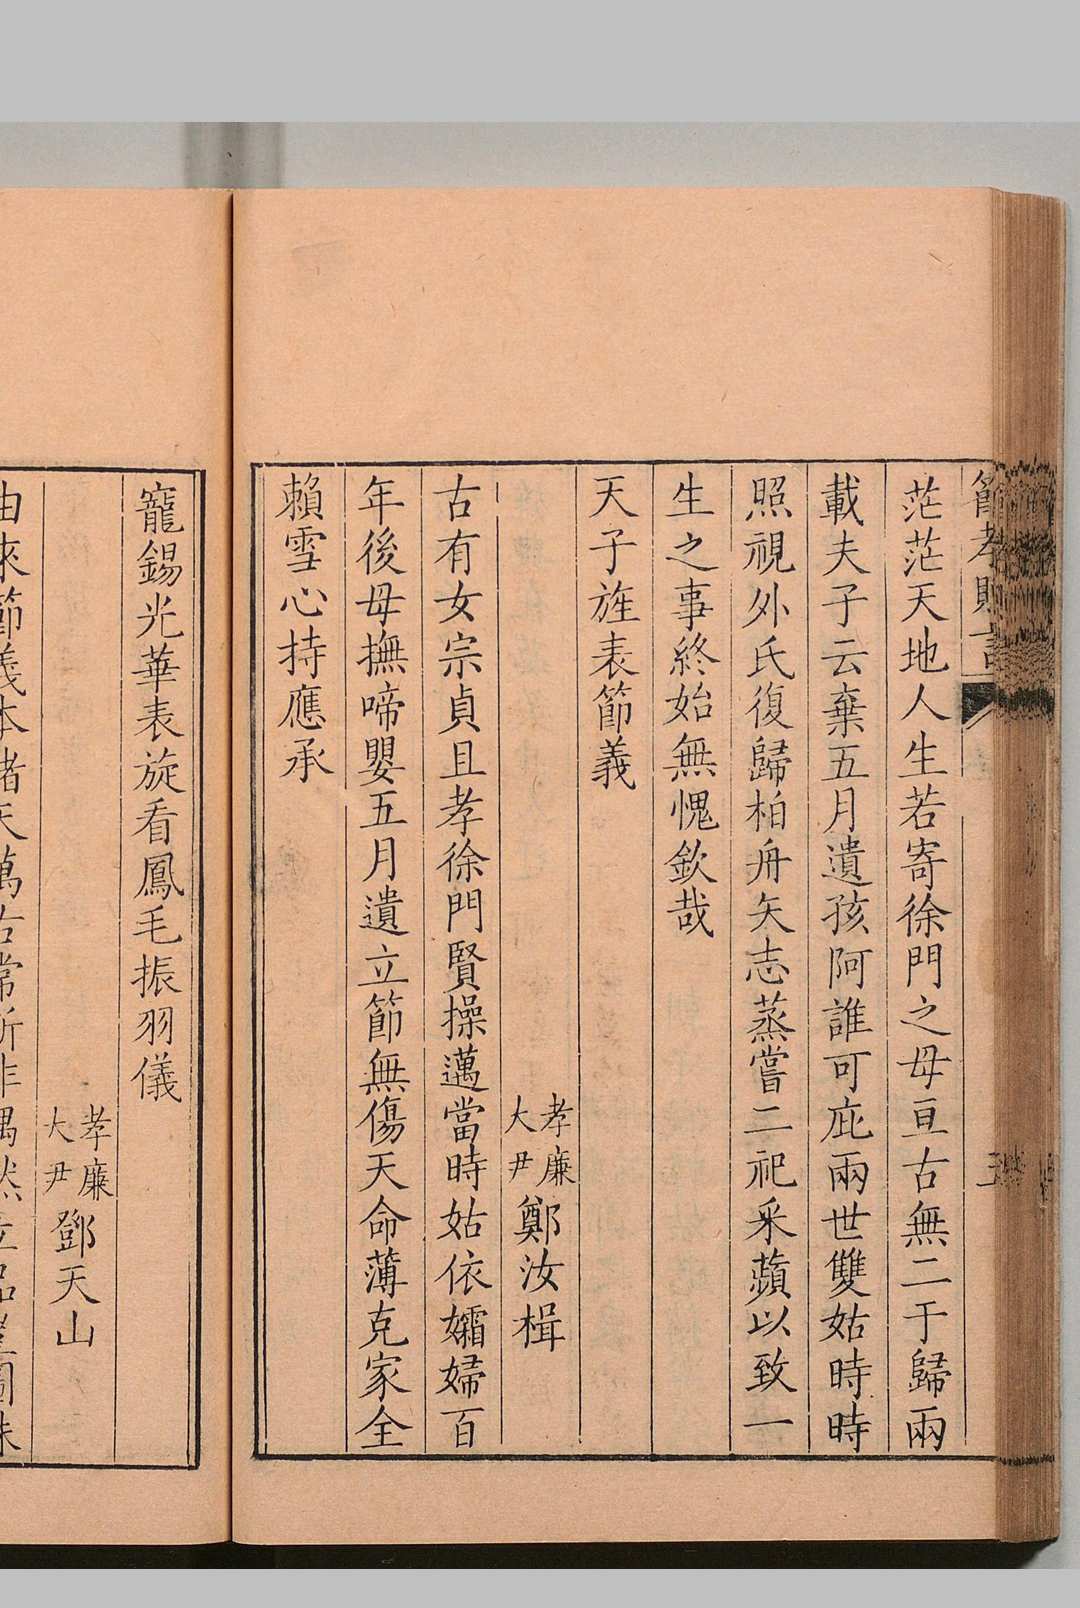 茫茫天地人生若寄徐門之母亘古無二于歸兩
載夫子云棄五月遺孩阿誰可庇兩世雙姑時時
照視外氏復歸柏舟矢志蒸嘗二祀采蘋以致一
生之事終始無愧欽哉
天子旌表節義
孝廉大尹鄭汝楫
古有女宗貞且孝徐門賢操邁當時姑依孀婦百
年後母撫啼嬰五月遺立節無傷天命薄克家全
賴雪心持應承
寵錫光華表旋看鳳毛振羽儀
孝廉大尹鄧天山